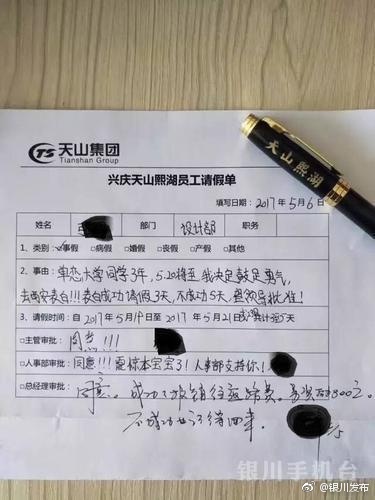 TS 天山集团
Tianshan Group
天山熙湖
兴庆天山熙湖员工请假单
填写日期：2017年5月6日
姓名 部门 设计部 职务
1、类别：☑事假 □病假 □婚假 □丧假 □产假 □其他
2、事由：单恋大学同学3年，5.20将至，我决定鼓足勇气，
去西安表白!!!表白成功请假3天，不成功5天，望领导批准！
3、请假时间：自2017年5月19日至2017年5月21日 共计 5天
□主管审批：同意!!!
□人事部审批：同意!!!震惊本宝宝了！人事部支持你！
□总经理审批：同意。成功了报销往返路费。
不成功也记得回来。
银川手机台
@银川发布